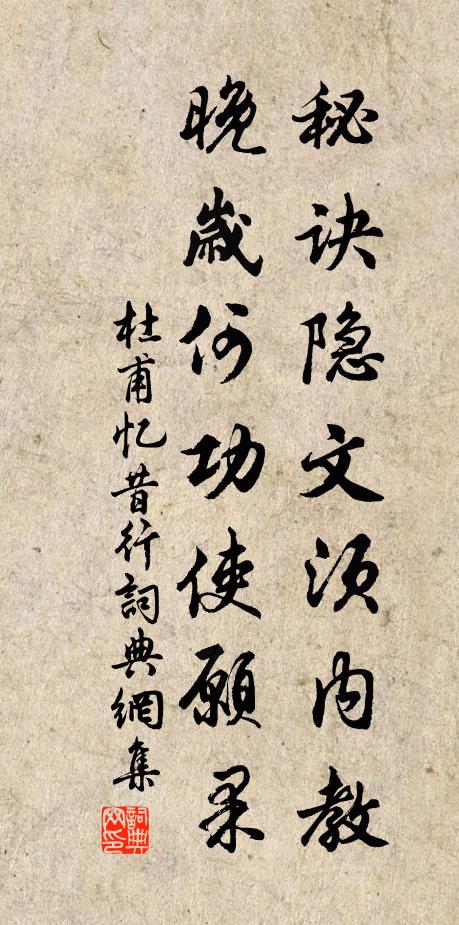 秘诀隐文须内教
晚岁何功使愿果
杜甫忆昔行詞典網集
詞典
网印